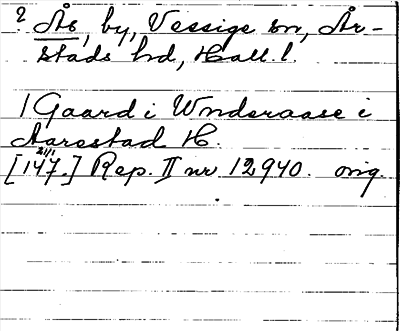 ? Ås, by, Vessige sn, År-
stads hd, Hall. l.
1 Gaard i Wnderaase i
Aarsstad H.
21/1
[147.] Rep. II nr 12940. orig.